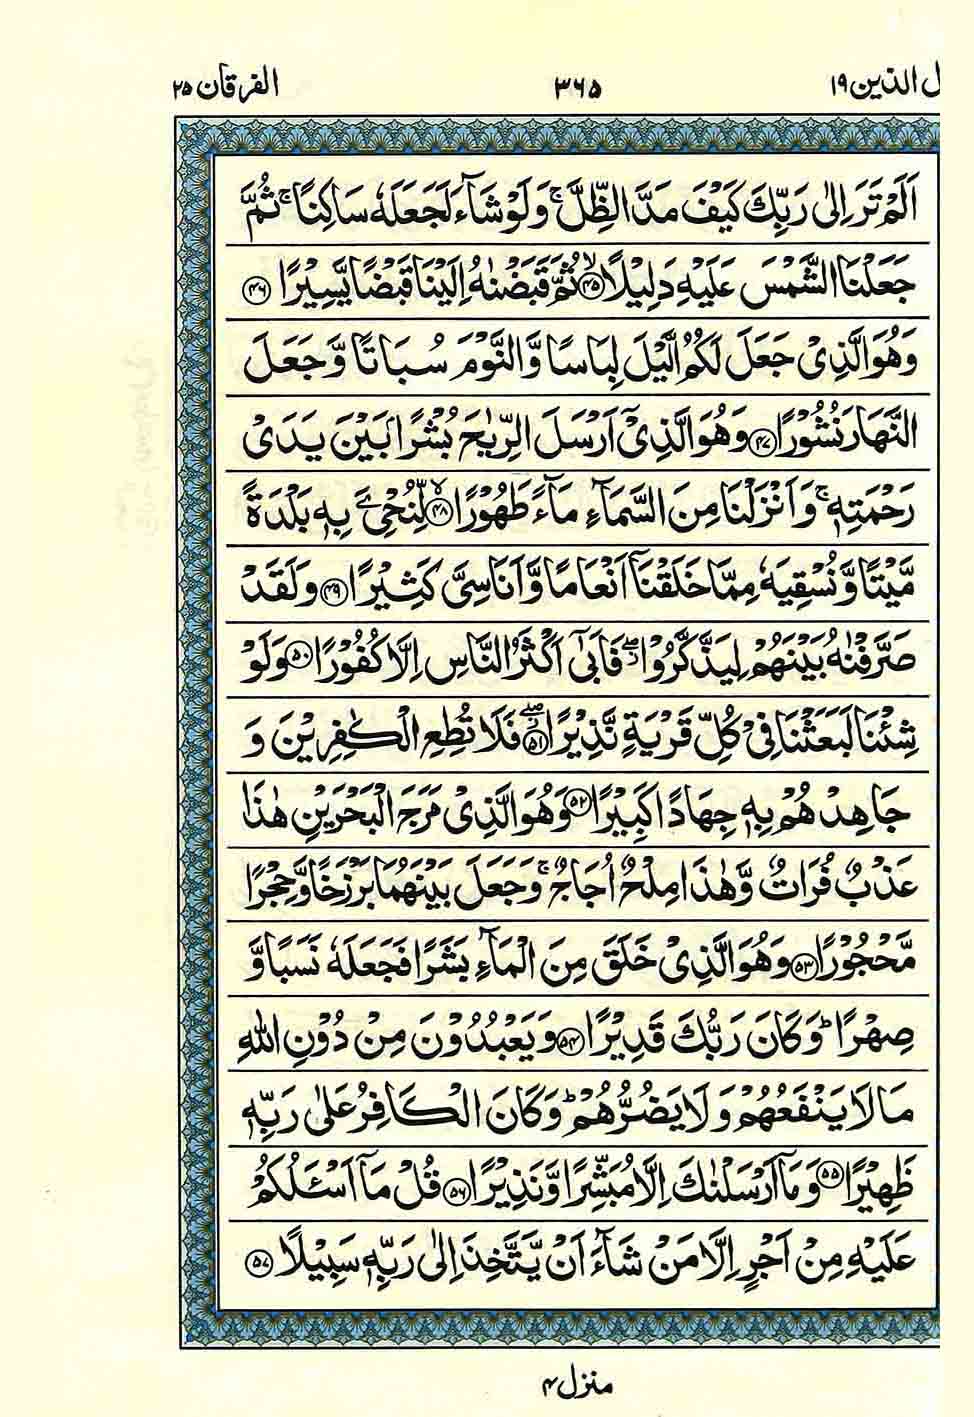 ل الذين ١٩
٣٦٥
الفرقان ٢٥
اَلَمْ تَرَ اِلٰى رَبِّكَ كَيْفَ مَدَّ الظِّلَّ ۚ وَلَوْ شَآءَ لَجَعَلَهٗ سَاكِنًا ۚ ثُمَّ
جَعَلْنَا الشَّمْسَ عَلَيْهِ دَلِيْلًا ۙ﴿۴۵﴾ ثُمَّ قَبَضْنٰهُ اِلَيْنَا قَبْضًا يَّسِيْرًا ﴿۴۶﴾
وَهُوَ الَّذِىْ جَعَلَ لَكُمُ الَّيْلَ لِبَاسًا وَّالنَّوْمَ سُبَاتًا وَّجَعَلَ
النَّهَارَ نُشُوْرًا ﴿۴۷﴾ وَهُوَ الَّذِىْۤ اَرْسَلَ الرِّيٰحَ بُشْرًۢا بَيْنَ يَدَىْ
رَحْمَتِهٖ ۚ وَاَنْزَلْنَا مِنَ السَّمَآءِ مَآءً طَهُوْرًا ۙ﴿۴۸﴾ لِّنُحْیِۦَ بِهٖ بَلْدَةً
مَّيْتًا وَّنُسْقِيَهٗ مِمَّا خَلَقْنَاۤ اَنْعَامًا وَّاَنَاسِىَّ كَثِيْرًا ﴿۴۹﴾ وَلَقَدْ
صَرَّفْنٰهُ بَيْنَهُمْ لِيَذَّكَّرُوْا ۖ فَاَبٰۤى اَكْثَرُ النَّاسِ اِلَّا كُفُوْرًا ﴿۵۰﴾ وَلَوْ
شِئْنَا لَبَعَثْنَا فِىْ كُلِّ قَرْيَةٍ نَّذِيْرًا ۖ﴿۵۱﴾ فَلَا تُطِعِ الْكٰفِرِيْنَ وَ
جَاهِدْهُمْ بِهٖ جِهَادًا كَبِيْرًا ﴿۵۲﴾ وَهُوَ الَّذِىْ مَرَجَ الْبَحْرَيْنِ هٰذَا
عَذْبٌ فُرَاتٌ وَّهٰذَا مِلْحٌ اُجَاجٌ ۚ وَجَعَلَ بَيْنَهُمَا بَرْزَخًا وَّحِجْرًا
مَّحْجُوْرًا ﴿۵۳﴾ وَهُوَ الَّذِىْ خَلَقَ مِنَ الْمَآءِ بَشَرًا فَجَعَلَهٗ نَسَبًا وَّ
صِهْرًا ؕ وَكَانَ رَبُّكَ قَدِيْرًا ﴿۵۴﴾ وَيَعْبُدُوْنَ مِنْ دُوْنِ اللّٰهِ
مَا لَا يَنْفَعُهُمْ وَلَا يَضُرُّهُمْ ؕ وَكَانَ الْكَافِرُ عَلٰى رَبِّهٖ
ظَهِيْرًا ﴿۵۵﴾ وَمَاۤ اَرْسَلْنٰكَ اِلَّا مُبَشِّرًا وَّنَذِيْرًا ﴿۵۶﴾ قُلْ مَاۤ اَسْـَٔلُكُمْ
عَلَيْهِ مِنْ اَجْرٍ اِلَّا مَنْ شَآءَ اَنْ يَّتَّخِذَ اِلٰى رَبِّهٖ سَبِيْلًا ﴿۵۷﴾
منزل ۴